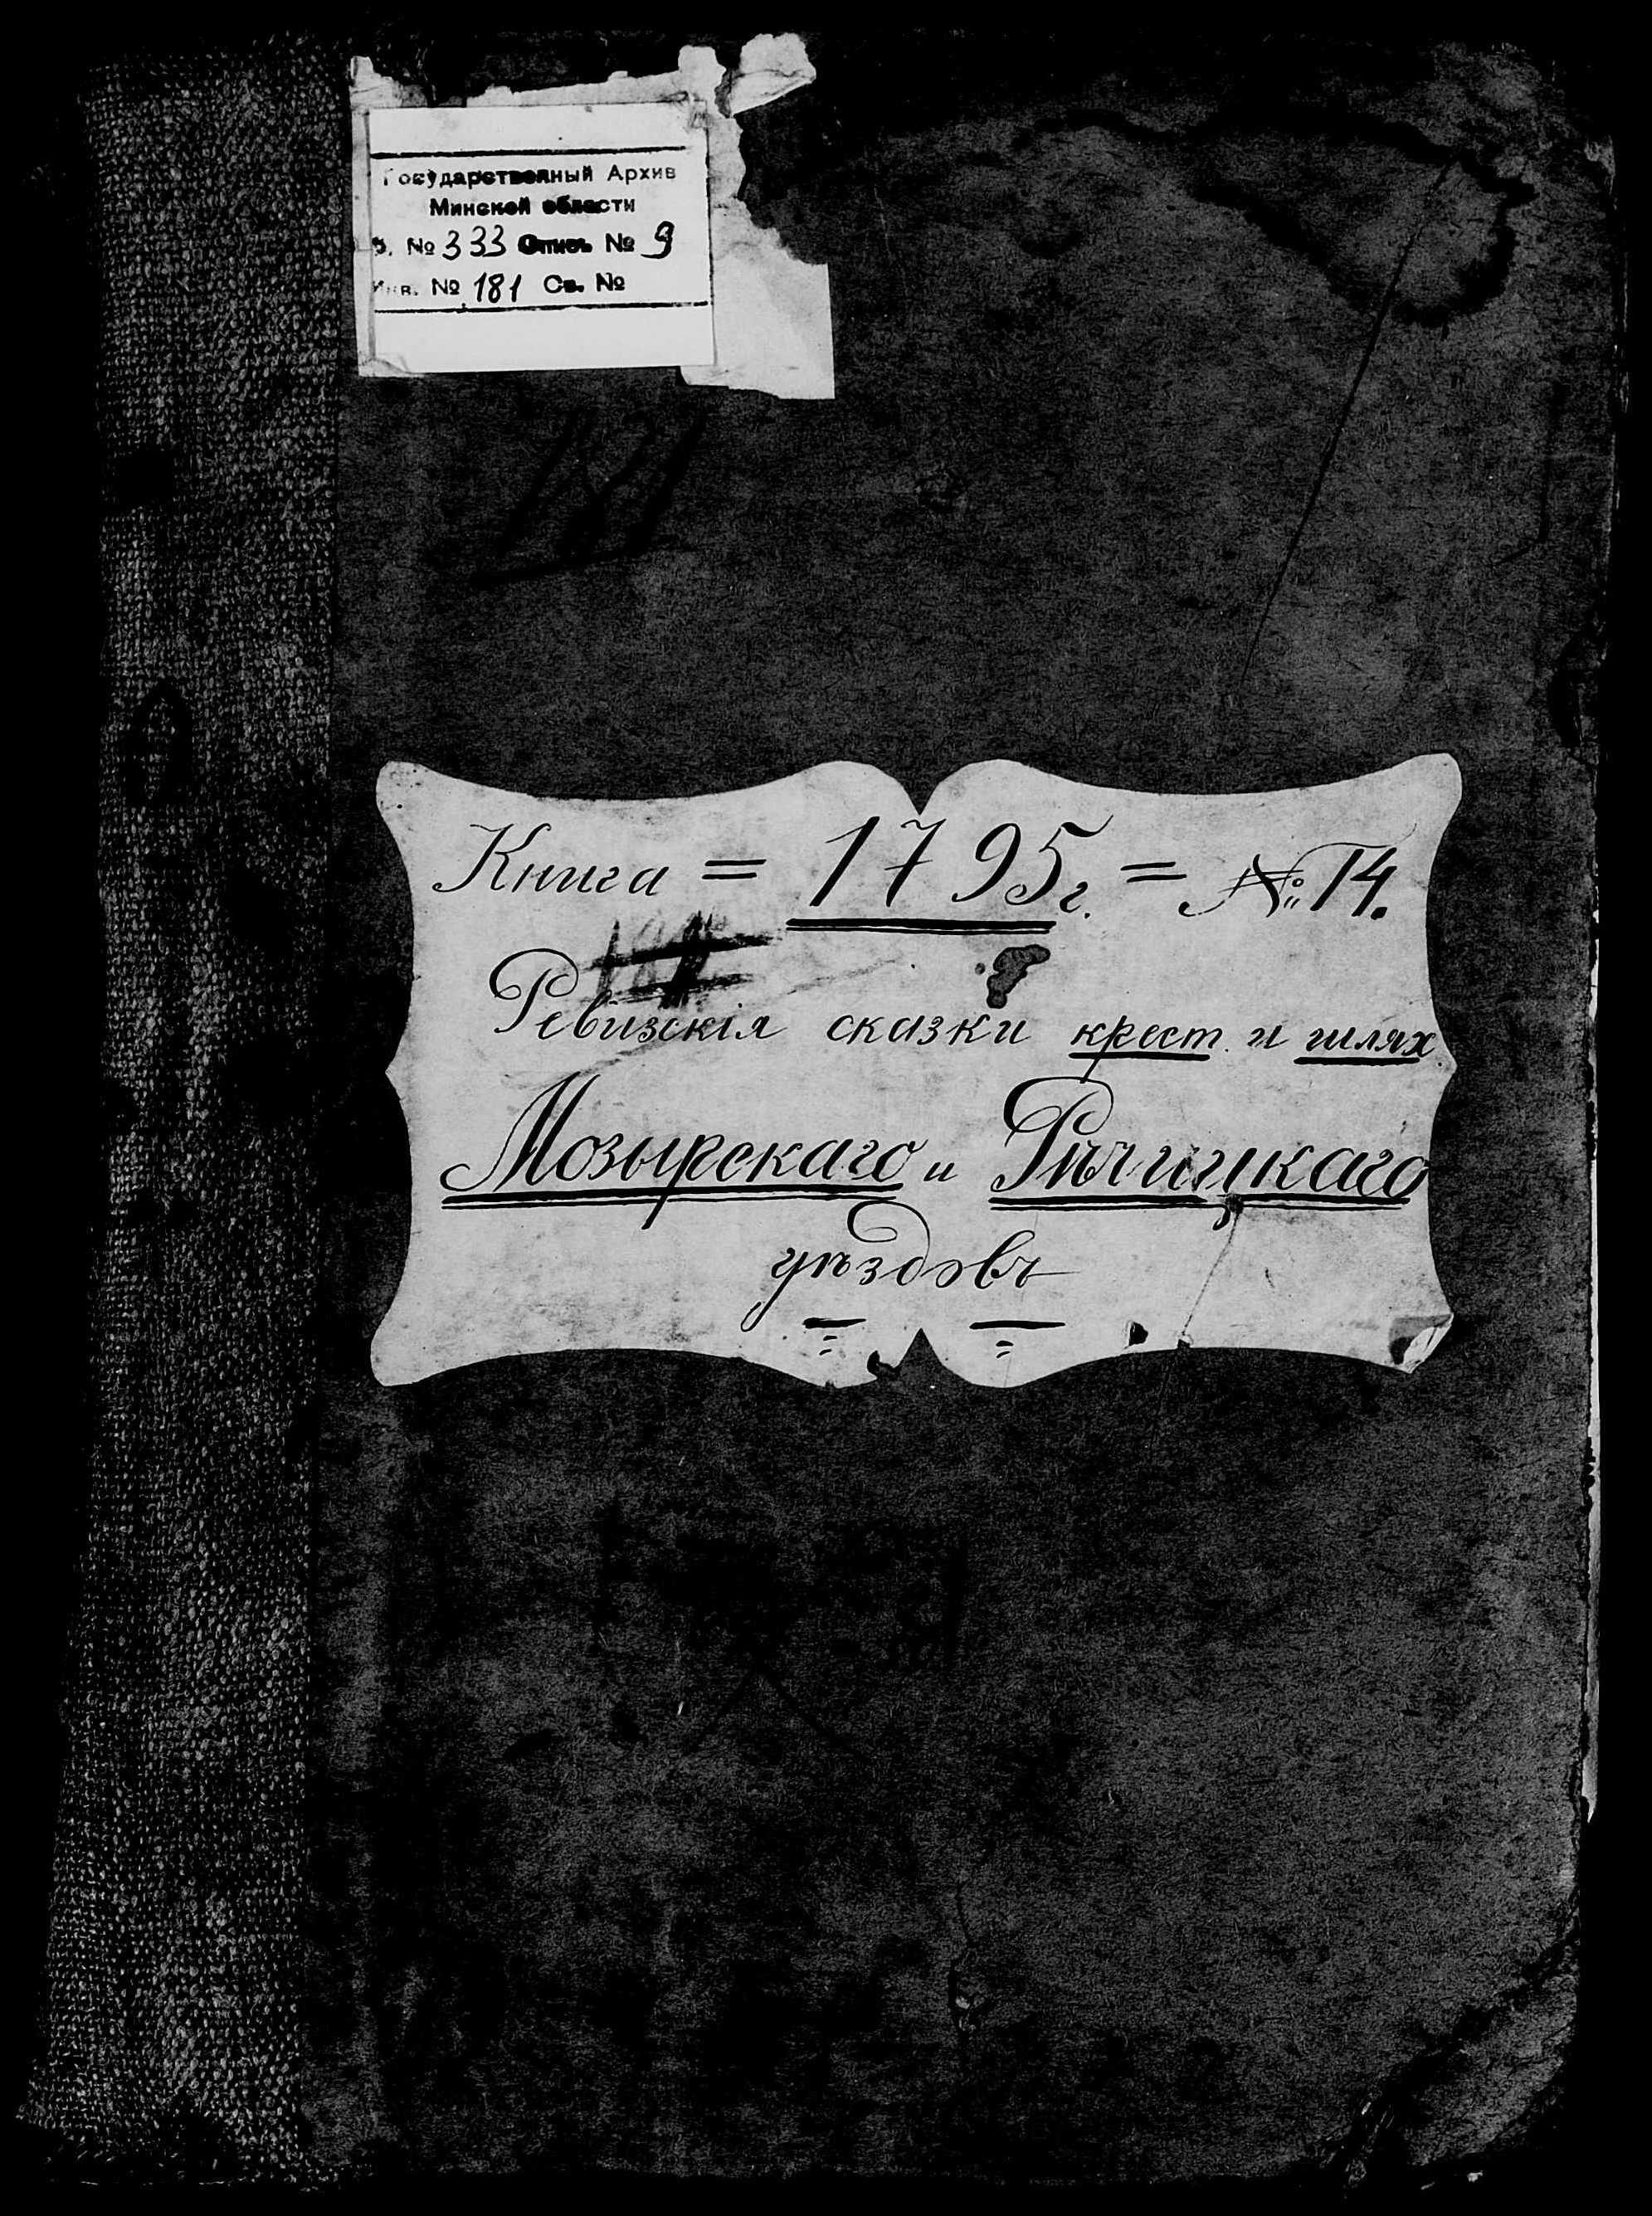 Государственный Архив
Минской области
Ф. № 333 Опись № 9
Инв. № 181 Св. №
181
Книга = 1795г. = №14.
Ревизскія сказки крест. и шлях.
Мозырскаго и Рѣчицкаго
уѣздовъ